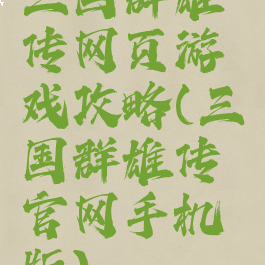 三国群雄
传网页游
戏攻略(三
国群雄传
官网手机
版)